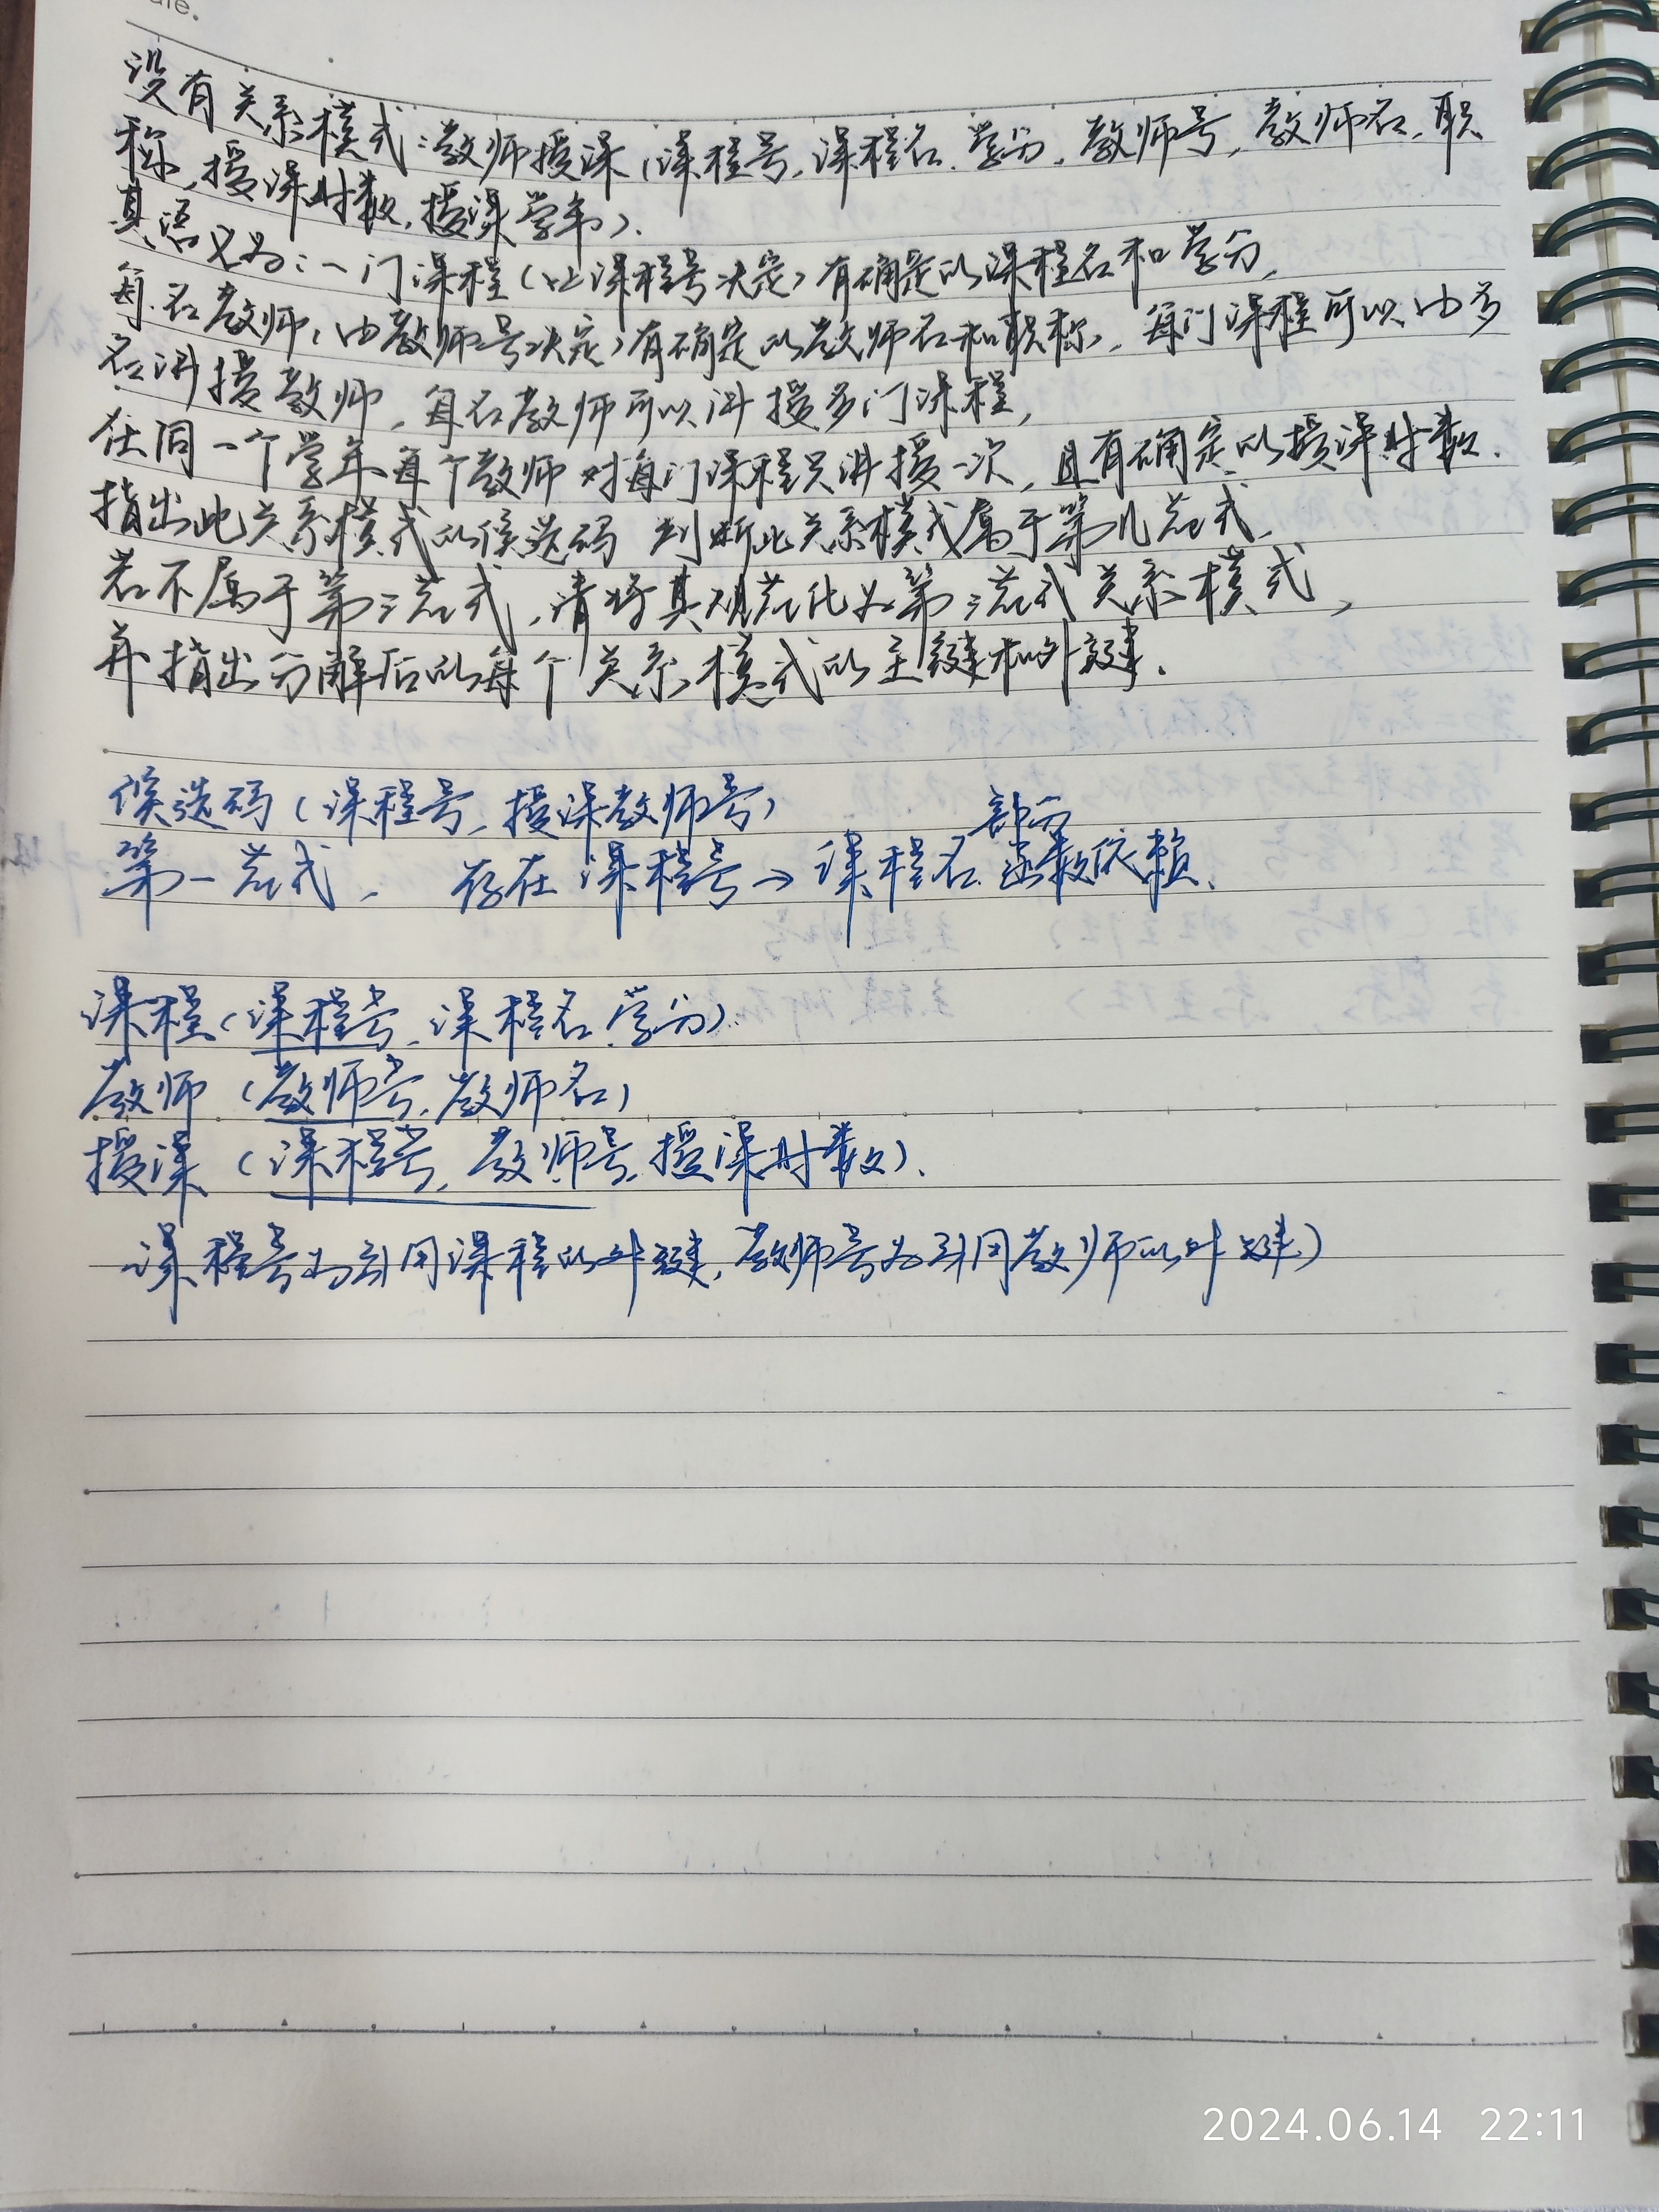 ate.
设有关系模式:教师授课(课程号,课程名,学分,教师号,教师名,职
称,授课时数,授课学年).
其语义为:一门课程(让课程号决定)有确定的课程名和学分,
每名教师(由教师号决定)有确定的教师名和职称,每门课程可以由多
名讲授教师,每名教师可以讲授多门课程,
在同一个学年每个教师对每门课程只讲授一次,且有确定的授课时数.
指出此关系模式的候选码 判断此关系模式属于第几范式,
若不属于第三范式,请将其规范化为第三范式关系模式,
并指出分解后的每个关系模式的主键和外键.
候选码(课程号,授课教师号)
部分
第一范式, 存在课程号→课程名 函数依赖.
课程(课程号,课程名,学分).
教师(教师号,教师名)
授课(课程号,教师号,授课时数).
课程号为引用课程的外键,教师号为引用教师的外键)
2024.06.14 22:11